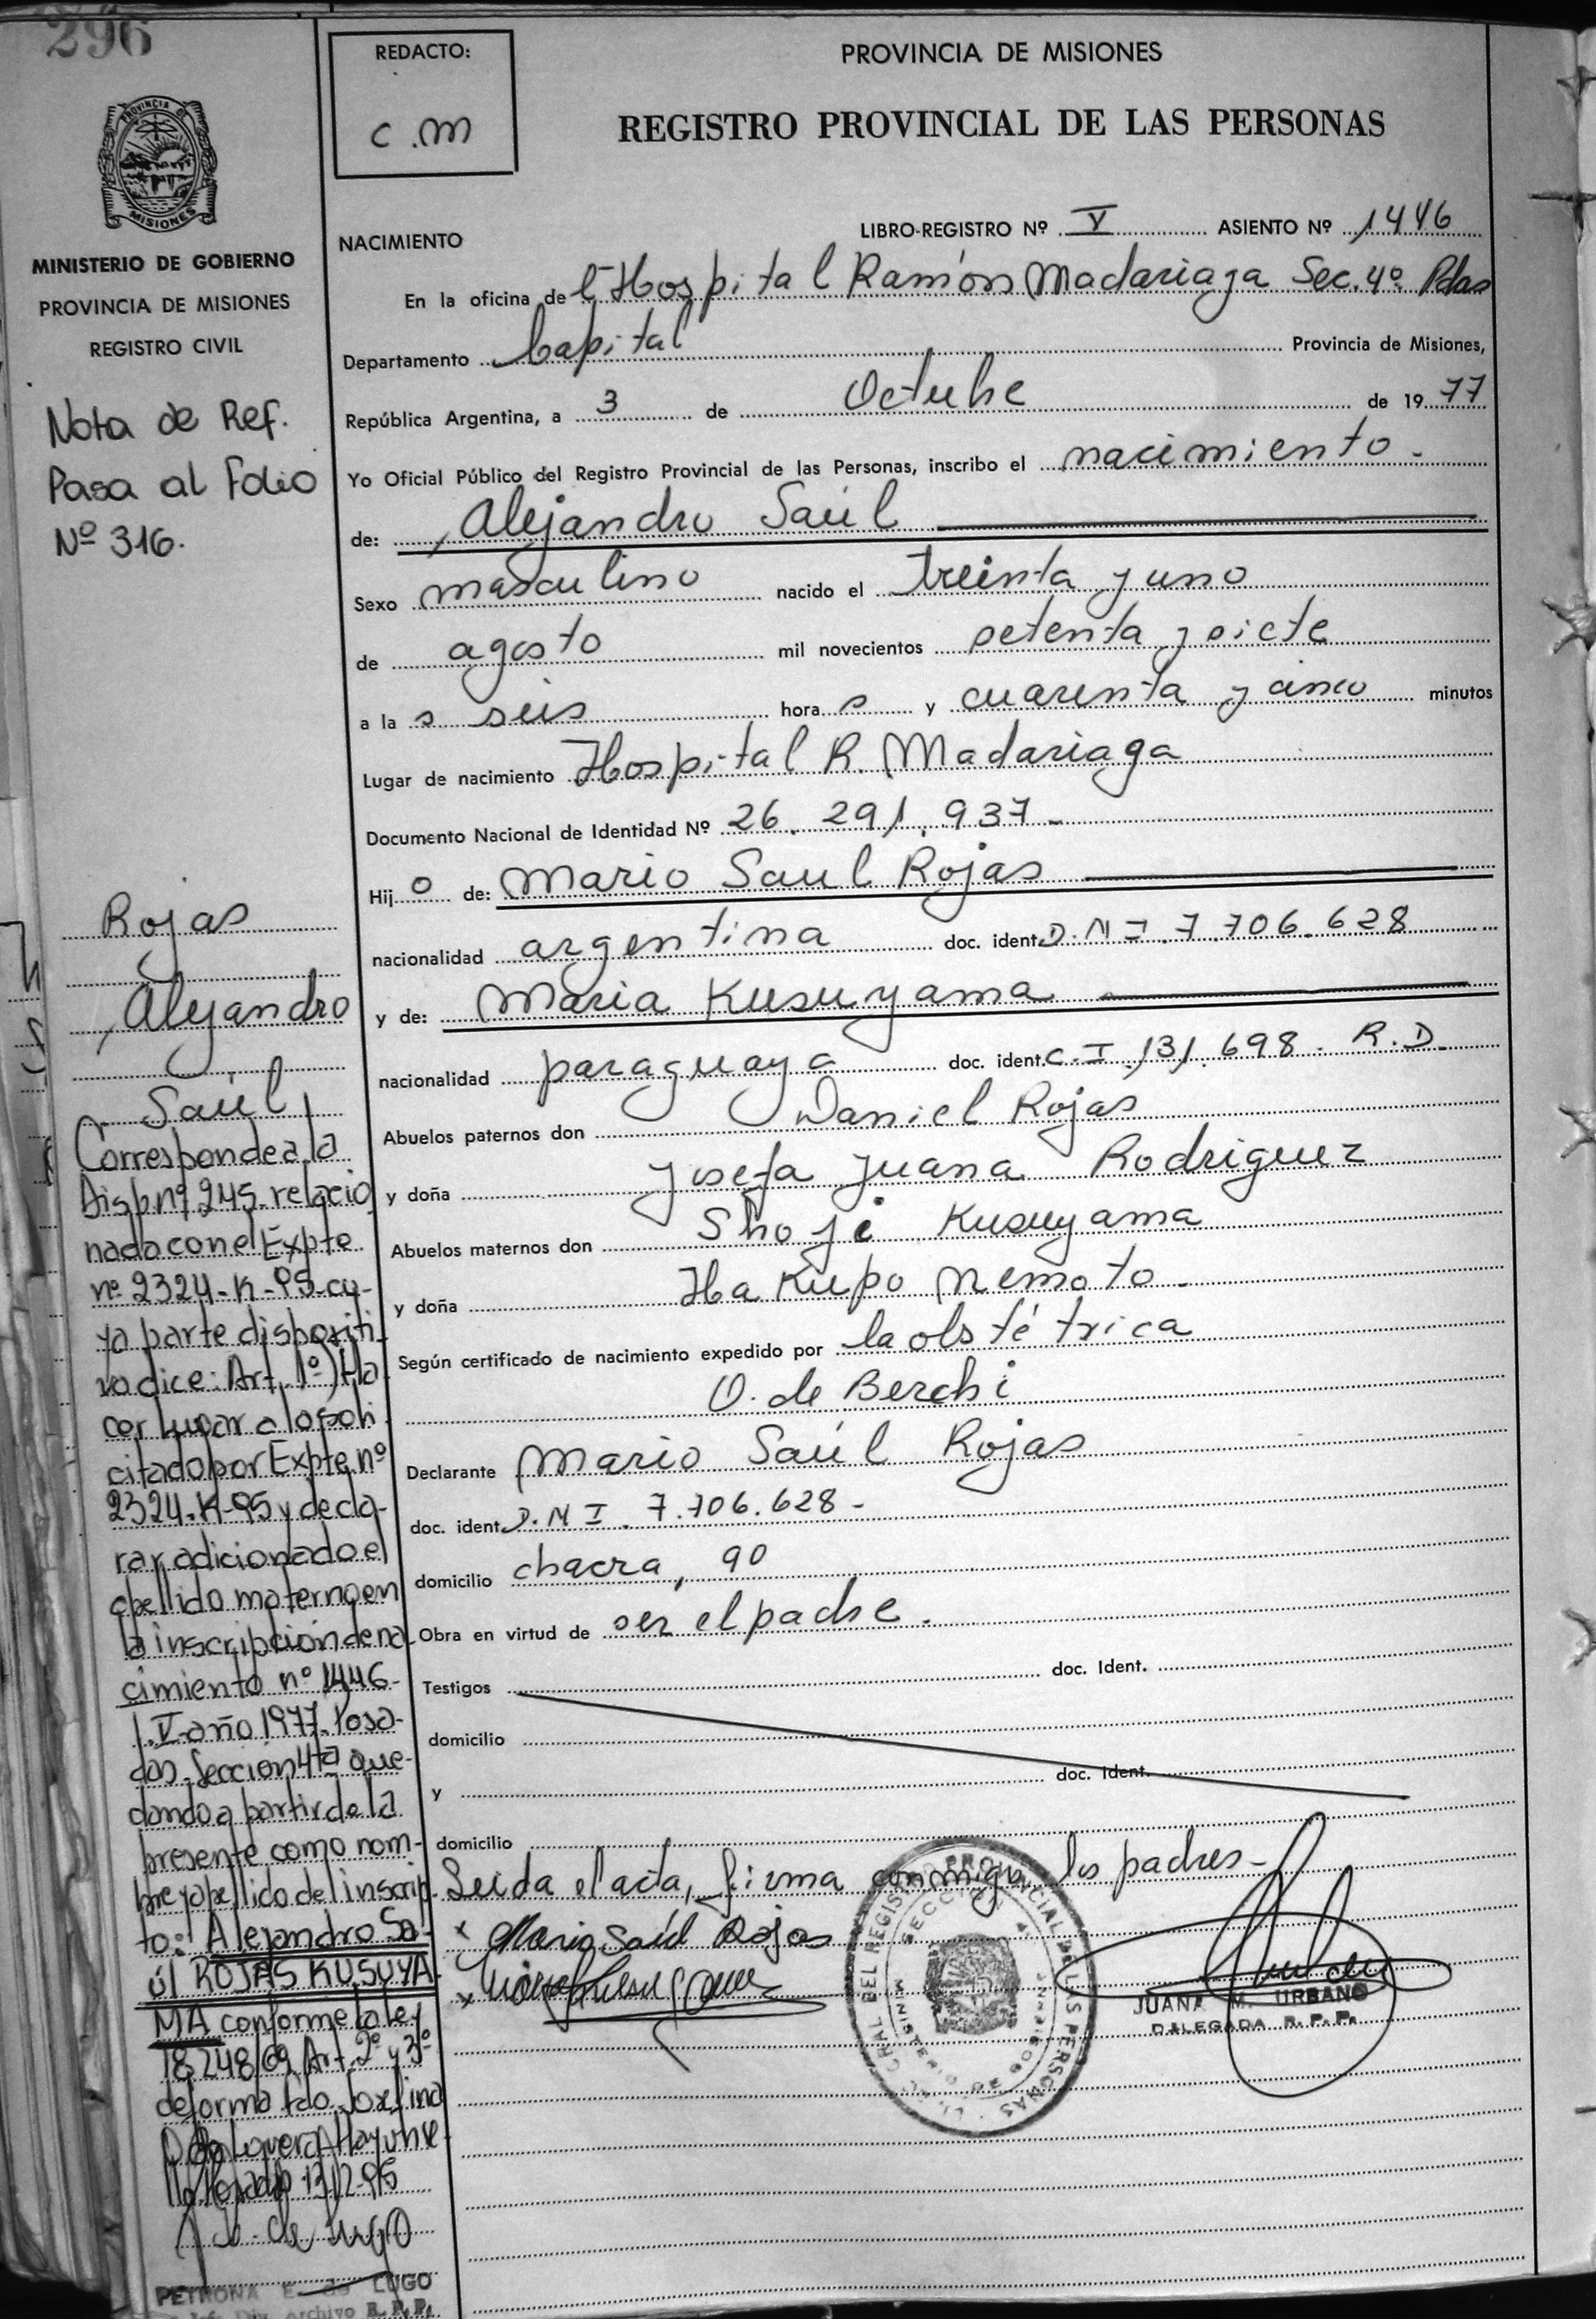 296
REDACTO:
C.M
PROVINCIA DE MISIONES
REGISTRO PROVINCIAL DE LAS PERSONAS
PROVINCIA
MISIONES
MINISTERIO DE GOBIERNO
PROVINCIA DE MISIONES
REGISTRO CIVIL
Nota de Ref.
Pasa al Folio
Nº 316.
NACIMIENTO
LIBRO-REGISTRO Nº V ASIENTO Nº 1446
En la oficina de l Hospital Ramón Madariaga Sec. 4º Pdas
Departamento Capital Provincia de Misiones,
República Argentina, a 3 de Octubre de 1977
Yo Oficial Público del Registro Provincial de las Personas, inscribo el nacimiento.
de: Alejandro Saúl
Sexo masculino nacido el treinta y uno
de agosto mil novecientos setenta y siete
a la s seis hora s y cuarenta y cinco minutos
Lugar de nacimiento Hospital R. Madariaga
Documento Nacional de Identidad Nº 26.291.937-
Hij o de: Mario Saul Rojas
nacionalidad argentina doc. ident. D.N.I. 7.706.628
y de: Maria Kusuyama
nacionalidad paraguaya doc. ident. C.I. 131.698. R.D.
Abuelos paternos don Daniel Rojas
y doña Josefa Juana Rodriguez
Abuelos maternos don Shoji Kusuyama
y doña Ha Kupo Nemoto.
Según certificado de nacimiento expedido por la obstétrica
O. de Berchi
Declarante Mario Saúl Rojas
doc. ident. D.N.I. 7.706.628-
domicilio chacra, 90
Obra en virtud de ser el padre.
Testigos doc. Ident.
domicilio
y doc. Ident.
domicilio
Leida el acta, firma conmigo los padres-
Mario Saúl Rojas
JUANA M. URBANO
DELEGADA R. P. P.
Rojas
Alejandro
Saúl
Corresponde a la
Disp. nº 245. relacio
nada con el Expte
nº 2324-K-95-cu-
ya parte dispositi
va dice: Art. 1º) Ha
cer lugar a lo soli
citado por Expte nº
2324-K-95 y decla-
rar adicionado el
apellido materno en
la inscripcion de na
cimiento nº 1446-
T.V-año 1977. Posa-
das-Seccion 4ta que-
dando a partir de la
presente como nom-
bre y apellido del inscrip
to: Alejandro Sa-
úl ROJAS KUSUYA
MA conforme la ley
18248/69 Art. 2º y 3º
de forma
Posadas 13/12-95
PETRONA E. de LUGO
Div. Archivo R.P.P.